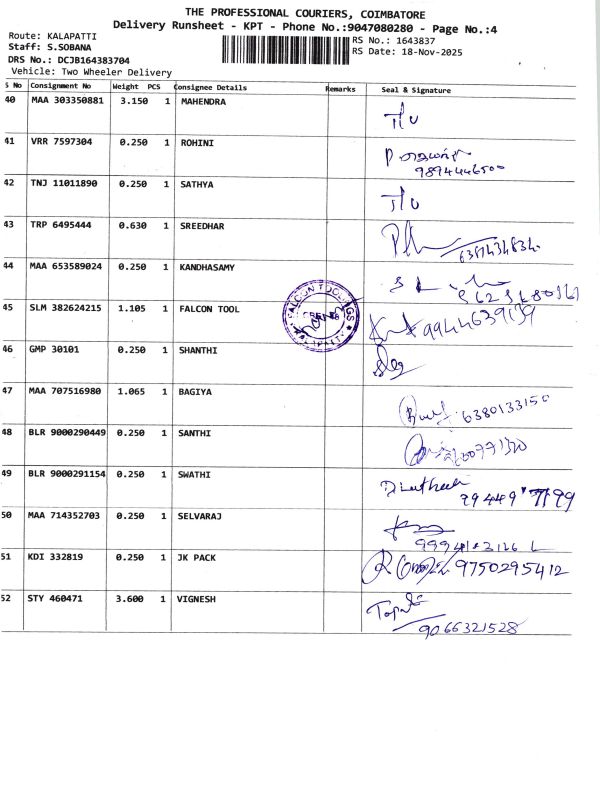 THE PROFESSIONAL COURIERS, COIMBATORE
Delivery Runsheet - KPT - Phone No.:9047080280 - Page No.:4
Route: KALAPATTI
RS No.: 1643837
Staff: S.SOBANA
RS Date: 18-Nov-2025
DRS No.: DCJB164383704
Vehicle: Two Wheeler Delivery
S No Consignment No Weight PCS Consignee Details Remarks Seal & Signature
40 MAA 303350881 3.150 1 MAHENDRA
41 VRR 7597304 0.250 1 ROHINI
9894446500
42 TNJ 11011890 0.250 1 SATHYA
43 TRP 6495444 0.630 1 SREEDHAR
6387434834
44 MAA 653589024 0.250 1 KANDHASAMY
45 SLM 382624215 1.105 1 FALCON TOOL
FALCON TOOLINGS
9944639139
46 GMP 30101 0.250 1 SHANTHI
47 MAA 707516980 1.065 1 BAGIYA
6380133150
48 BLR 9000290449 0.250 1 SANTHI
49 BLR 9000291154 0.250 1 SWATHI
79449 7799
50 MAA 714352703 0.250 1 SELVARAJ
51 KDI 332819 0.250 1 JK PACK
9750295412
52 STY 460471 3.600 1 VIGNESH
9066321528